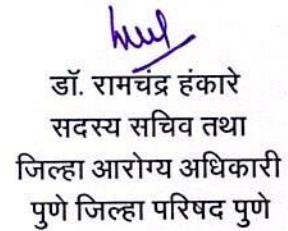 डॉ. रामचंद्र हंकारे
सदस्य सचिव तथा
जिल्हा आरोग्य अधिकारी
पुणे जिल्हा परिषद पुणे